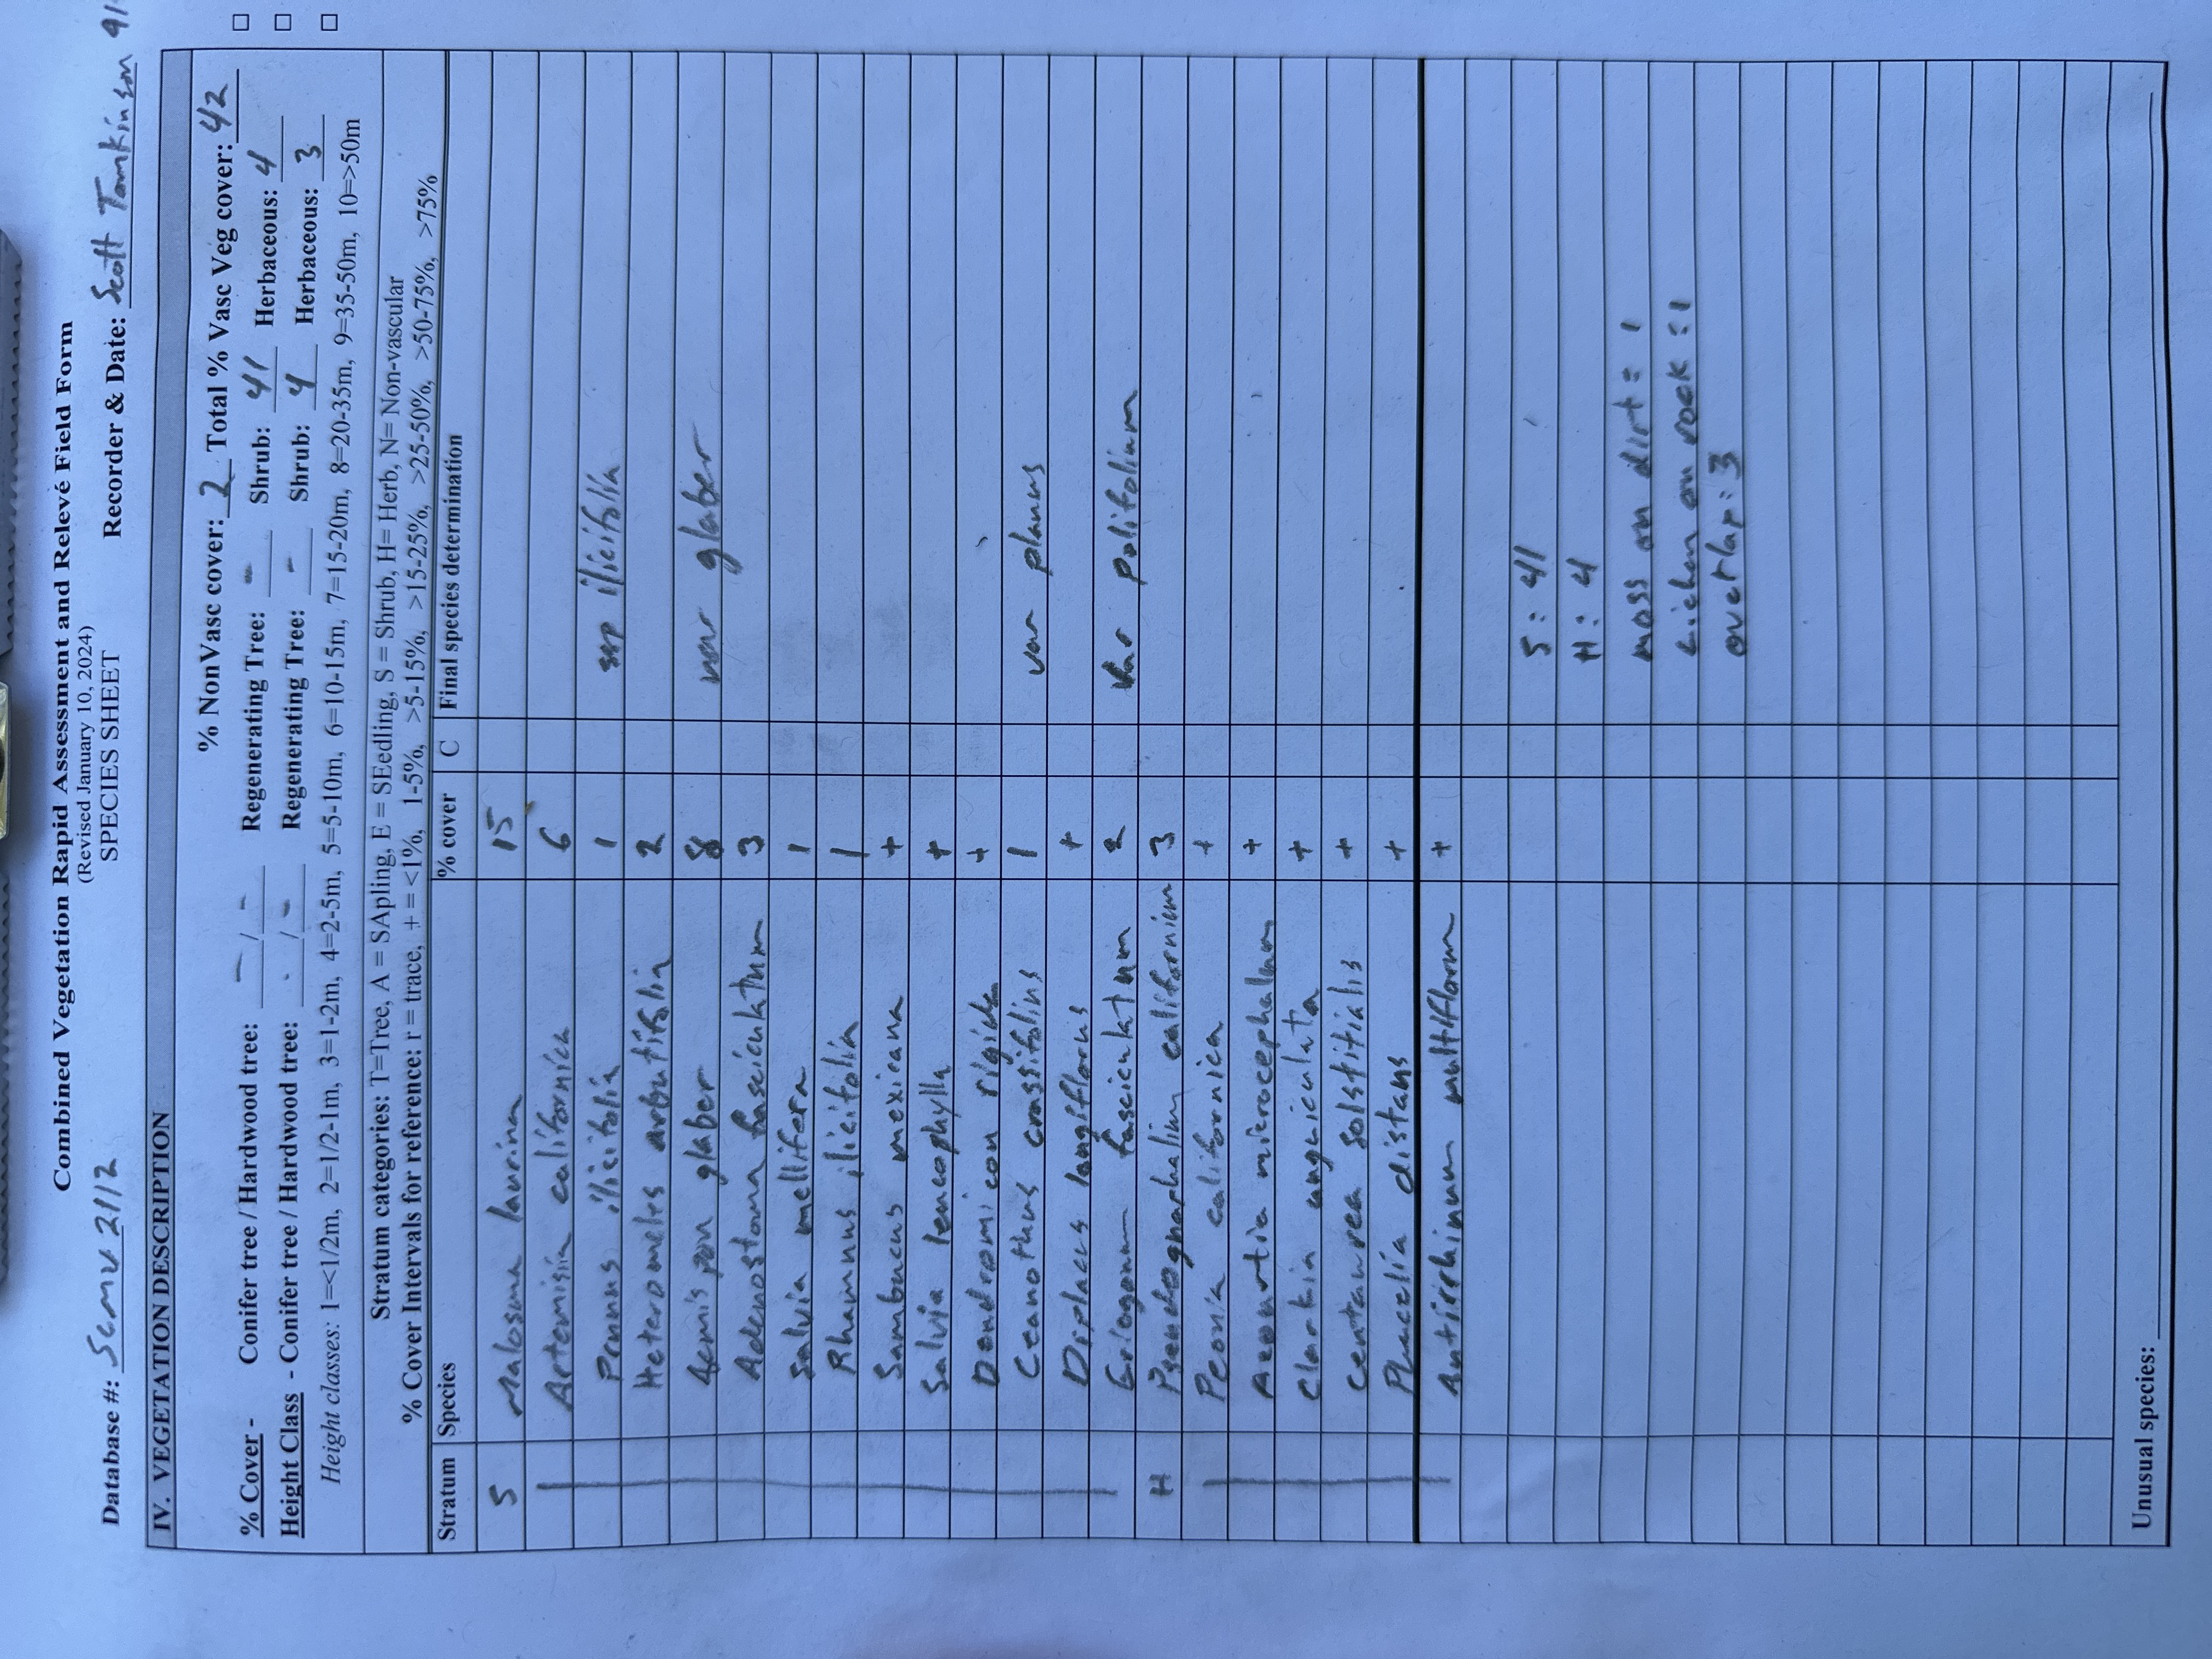 Combined Vegetation Rapid Assessment and Relevé Field Form
(Revised January 10, 2024)
SPECIES SHEET
Database #: Semu 2112 Recorder & Date: Scott Tomkinson 9/
IV. VEGETATION DESCRIPTION
% NonVasc cover: 2 Total % Vasc Veg cover: 42
% Cover - Conifer tree / Hardwood tree: - / - Regenerating Tree: - Shrub: 41 Herbaceous: 4
Height Class - Conifer tree / Hardwood tree: - / - Regenerating Tree: - Shrub: 4 Herbaceous: 3
Height classes: 1=<1/2m, 2=1/2-1m, 3=1-2m, 4=2-5m, 5=5-10m, 6=10-15m, 7=15-20m, 8=20-35m, 9=35-50m, 10=>50m
Stratum categories: T=Tree, A = SApling, E = SEedling, S = Shrub, H= Herb, N= Non-vascular
% Cover Intervals for reference: r = trace, + = <1%, 1-5%, >5-15%, >15-25%, >25-50%, >50-75%, >75%
Stratum Species % cover C Final species determination
S Malosma laurina 15
Artemisia californica 6
Prunus ilicifolia 1 ssp ilicifolia
Heteromeles arbutifolia 2
Acmispon glaber 8 var glaber
Adenostoma fasciculatum 3
Salvia mellifera 1
Rhamnus ilicifolia 1
Sambucus mexicana +
Salvia leucophylla +
Dendromicon rigida +
Ceanothus crassifolius 1 var planus
Diplacus longiflorus +
Eriogonum fasciculatum 2 var polifolium
H Pseudognaphalium californicum 3
Peonia californica +
Acourtia microcephala +
Clarkia unguiculata +
Centaurea solstitialis +
Phacelia distans +
Antirrhinum multiflorum +
S: 41
H: 4
moss on dirt = 1
Lichen on rock = 1
overlap: 3
Unusual species: